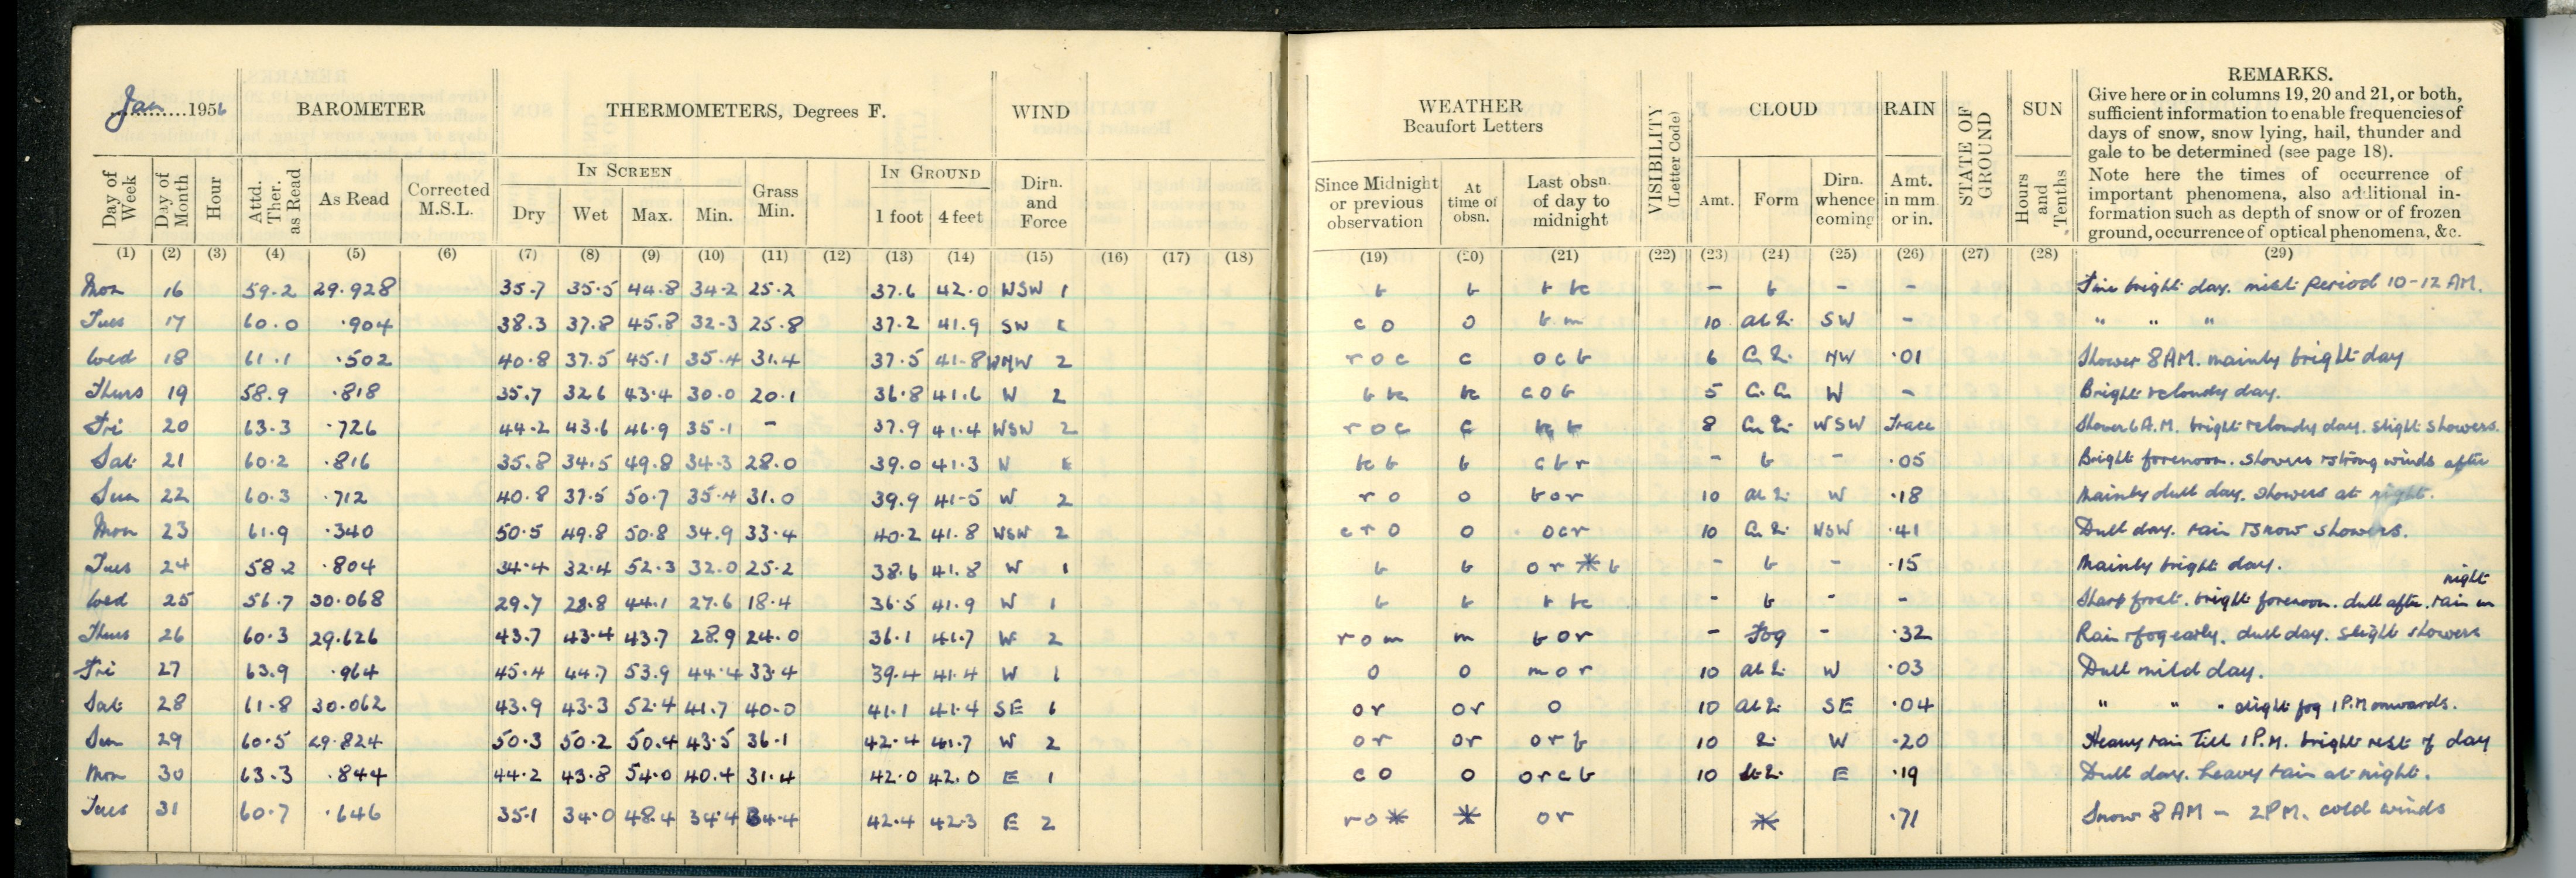 Jan 1956 BAROMETER THERMOMETERS, Degrees F. WIND
IN SCREEN IN GROUND
Day of Week Day of Month Hour Attd. Ther. as Read As Read Corrected M.S.L. Dry Wet Max. Min. Grass Min. 1 foot 4 feet Dirn. and Force
(1) (2) (3) (4) (5) (6) (7) (8) (9) (10) (11) (12) (13) (14) (15) (16) (17) (18)
Mon 16 59.2 29.928 35.7 35.5 44.8 34.2 25.2 37.6 42.0 WSW 1
Tues 17 60.0 .904 38.3 37.8 45.8 32.3 25.8 37.2 41.9 SW
Wed 18 61.1 .502 40.8 37.5 45.1 35.4 31.4 37.5 41.8 WNW 2
Thurs 19 58.9 .818 35.7 32.6 43.4 30.0 20.1 36.8 41.6 W 2
Fri 20 63.3 .726 44.2 43.6 46.9 35.1 - 37.9 41.4 WSW 2
Sat 21 60.2 .816 35.8 34.5 49.8 34.3 28.0 39.0 41.3
Sun 22 60.3 .712 40.8 37.5 50.7 35.4 31.0 39.9 41.5 W 2
Mon 23 61.9 .340 50.5 49.8 50.8 34.9 33.4 40.2 41.8 WSW 2
Tues 24 58.2 .804 34.4 32.4 52.3 32.0 25.2 38.6 41.8 W 1
Wed 25 56.7 30.068 29.7 28.8 44.1 27.6 18.4 36.5 41.9 W 1
Thurs 26 60.3 29.626 43.7 43.4 43.7 28.9 24.0 36.1 41.7 W 2
Fri 27 63.9 .964 45.4 44.7 53.9 44.4 33.4 39.4 41.4 W 1
Sat 28 61.8 30.062 43.9 43.3 52.4 41.7 40.0 41.1 41.4 SE 1
Sun 29 60.5 29.824 50.3 50.2 50.4 43.5 36.1 42.4 41.7 W 2
Mon 30 63.3 .844 44.2 43.8 54.0 40.4 31.4 42.0 42.0 E 1
Tues 31 60.7 .646 35.1 34.0 48.4 34.4 34.4 42.4 42.3 E 2
WEATHER Beaufort Letters VISIBILITY (Letter Code) CLOUD RAIN STATE OF GROUND SUN REMARKS.
Give here or in columns 19, 20 and 21, or both,
sufficient information to enable frequencies of
days of snow, snow lying, hail, thunder and
gale to be determined (see page 18).
Note here the times of occurrence of
important phenomena, also additional in-
formation such as depth of snow or of frozen
ground, occurrence of optical phenomena, &c.
Since Midnight or previous observation At time of obsn. Last obsn. of day to midnight Amt. Form Dirn. whence coming Amt. in mm. or in. Hours and Tenths
(19) (20) (21) (22) (23) (24) (25) (26) (27) (28) (29)
b b b bc - b - - Fine bright day. mist period 10-12 AM.
c o o b m 10 SW - " " "
r o c c o c b 6 NW .01 Shower 8 AM. mainly bright day
b bc bc c o b 5 W - Bright & cloudy day.
r o c c 8 WSW Trace Shower 6 A.M. bright & cloudy day. slight showers.
bc b b c b r - b - .05 Bright forenoon. showers & strong winds after
r o o b o r 10 W .18 Mainly dull day. showers at night.
c r o o o c r 10 WSW .41 Dull day. rain & snow showers.
b b o r * b - b - .15 Mainly bright day.
b b b bc - b - - Sharp frost. bright forenoon. dull after. rain in night
r o m m b o r - Fog - .32 Rain & fog early. dull day. slight showers
o o m o r 10 W .03 Dull mild day.
o r o r o 10 SE .04 " " " slight fog 1 P.M onwards.
o r o r o r b 10 W .20 Heavy rain Till 1 P.M. bright rest of day
c o o o r c b 10 E .19 Dull day. heavy rain at night.
r o * * o r * .71 Snow 8 AM - 2 PM. cold winds